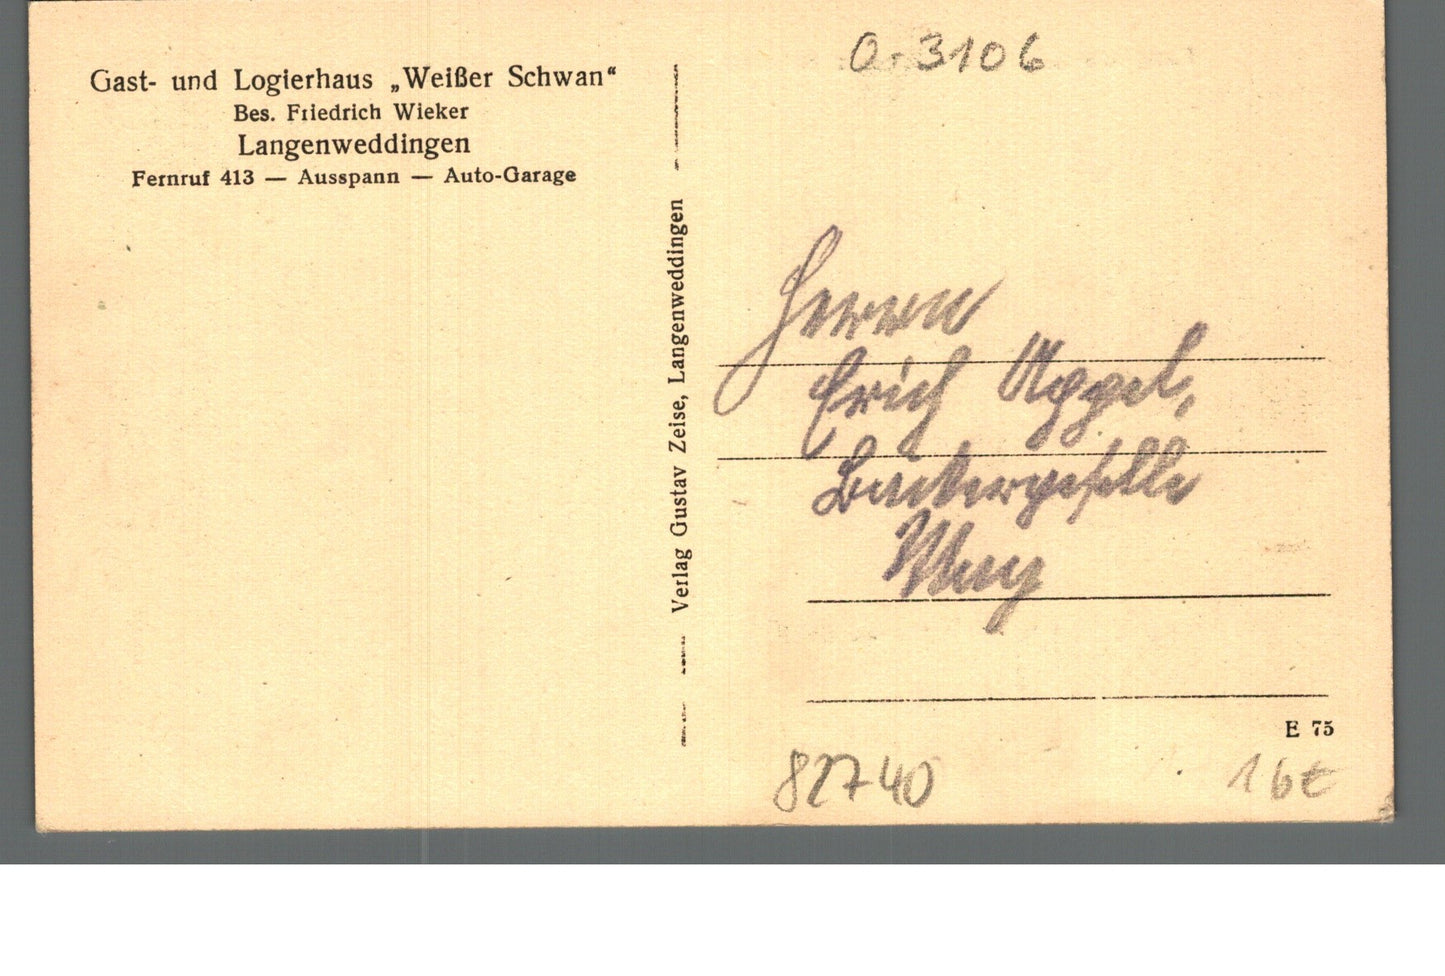 Gast- und Logierhaus „Weißer Schwan“
Bes. Friedrich Wieker
Langenweddingen
Fernruf 413 — Ausspann — Auto-Garage
Verlag Gustav Zeise, Langenweddingen
O-3106
Herrn
Erich Appel,
Bäckergeselle
E 75
82740
16€